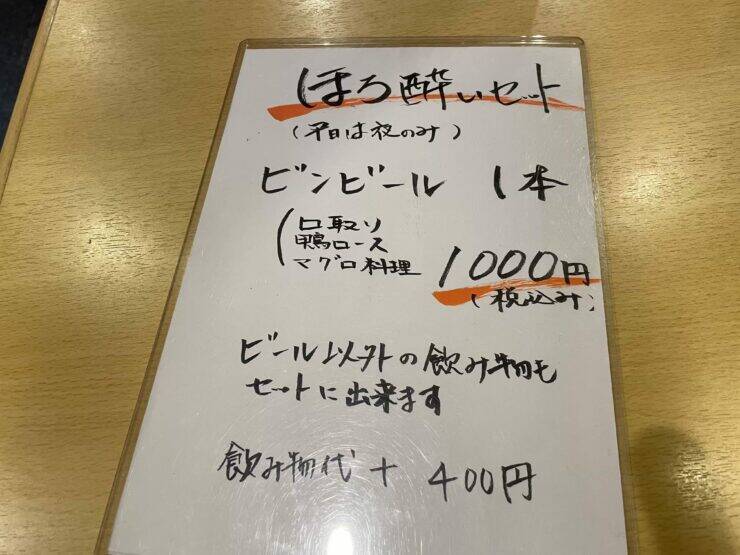 ほろ酔いセット
(平日は夜のみ)
ビンビール 1本
口取り
鴨ロース
マグロ料理
1000円
(税込み)
ビール以外の飲み物も
セットに出来ます
飲み物代 + 400円